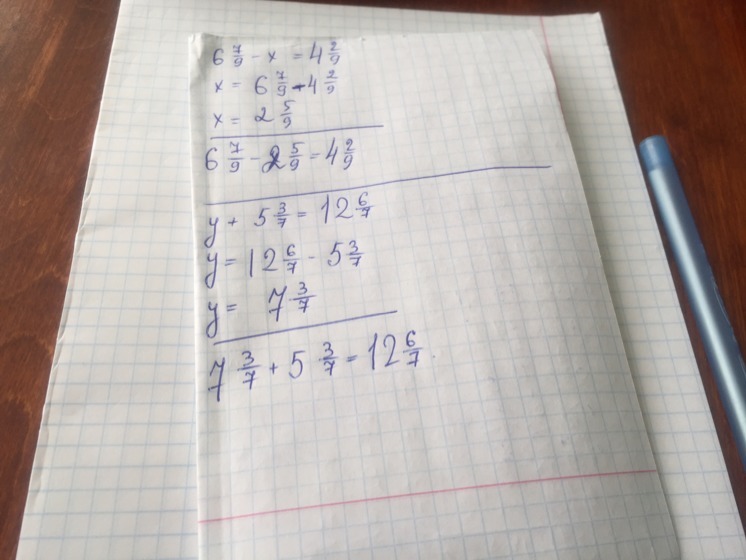 6 7/9 - x = 4 2/9
x = 6 7/9 - 4 2/9
x = 2 5/9
6 7/9 - 2 5/9 = 4 2/9
y + 5 3/7 = 12 6/7
y = 12 6/7 - 5 3/7
y = 7 3/7
7 3/7 + 5 3/7 = 12 6/7.